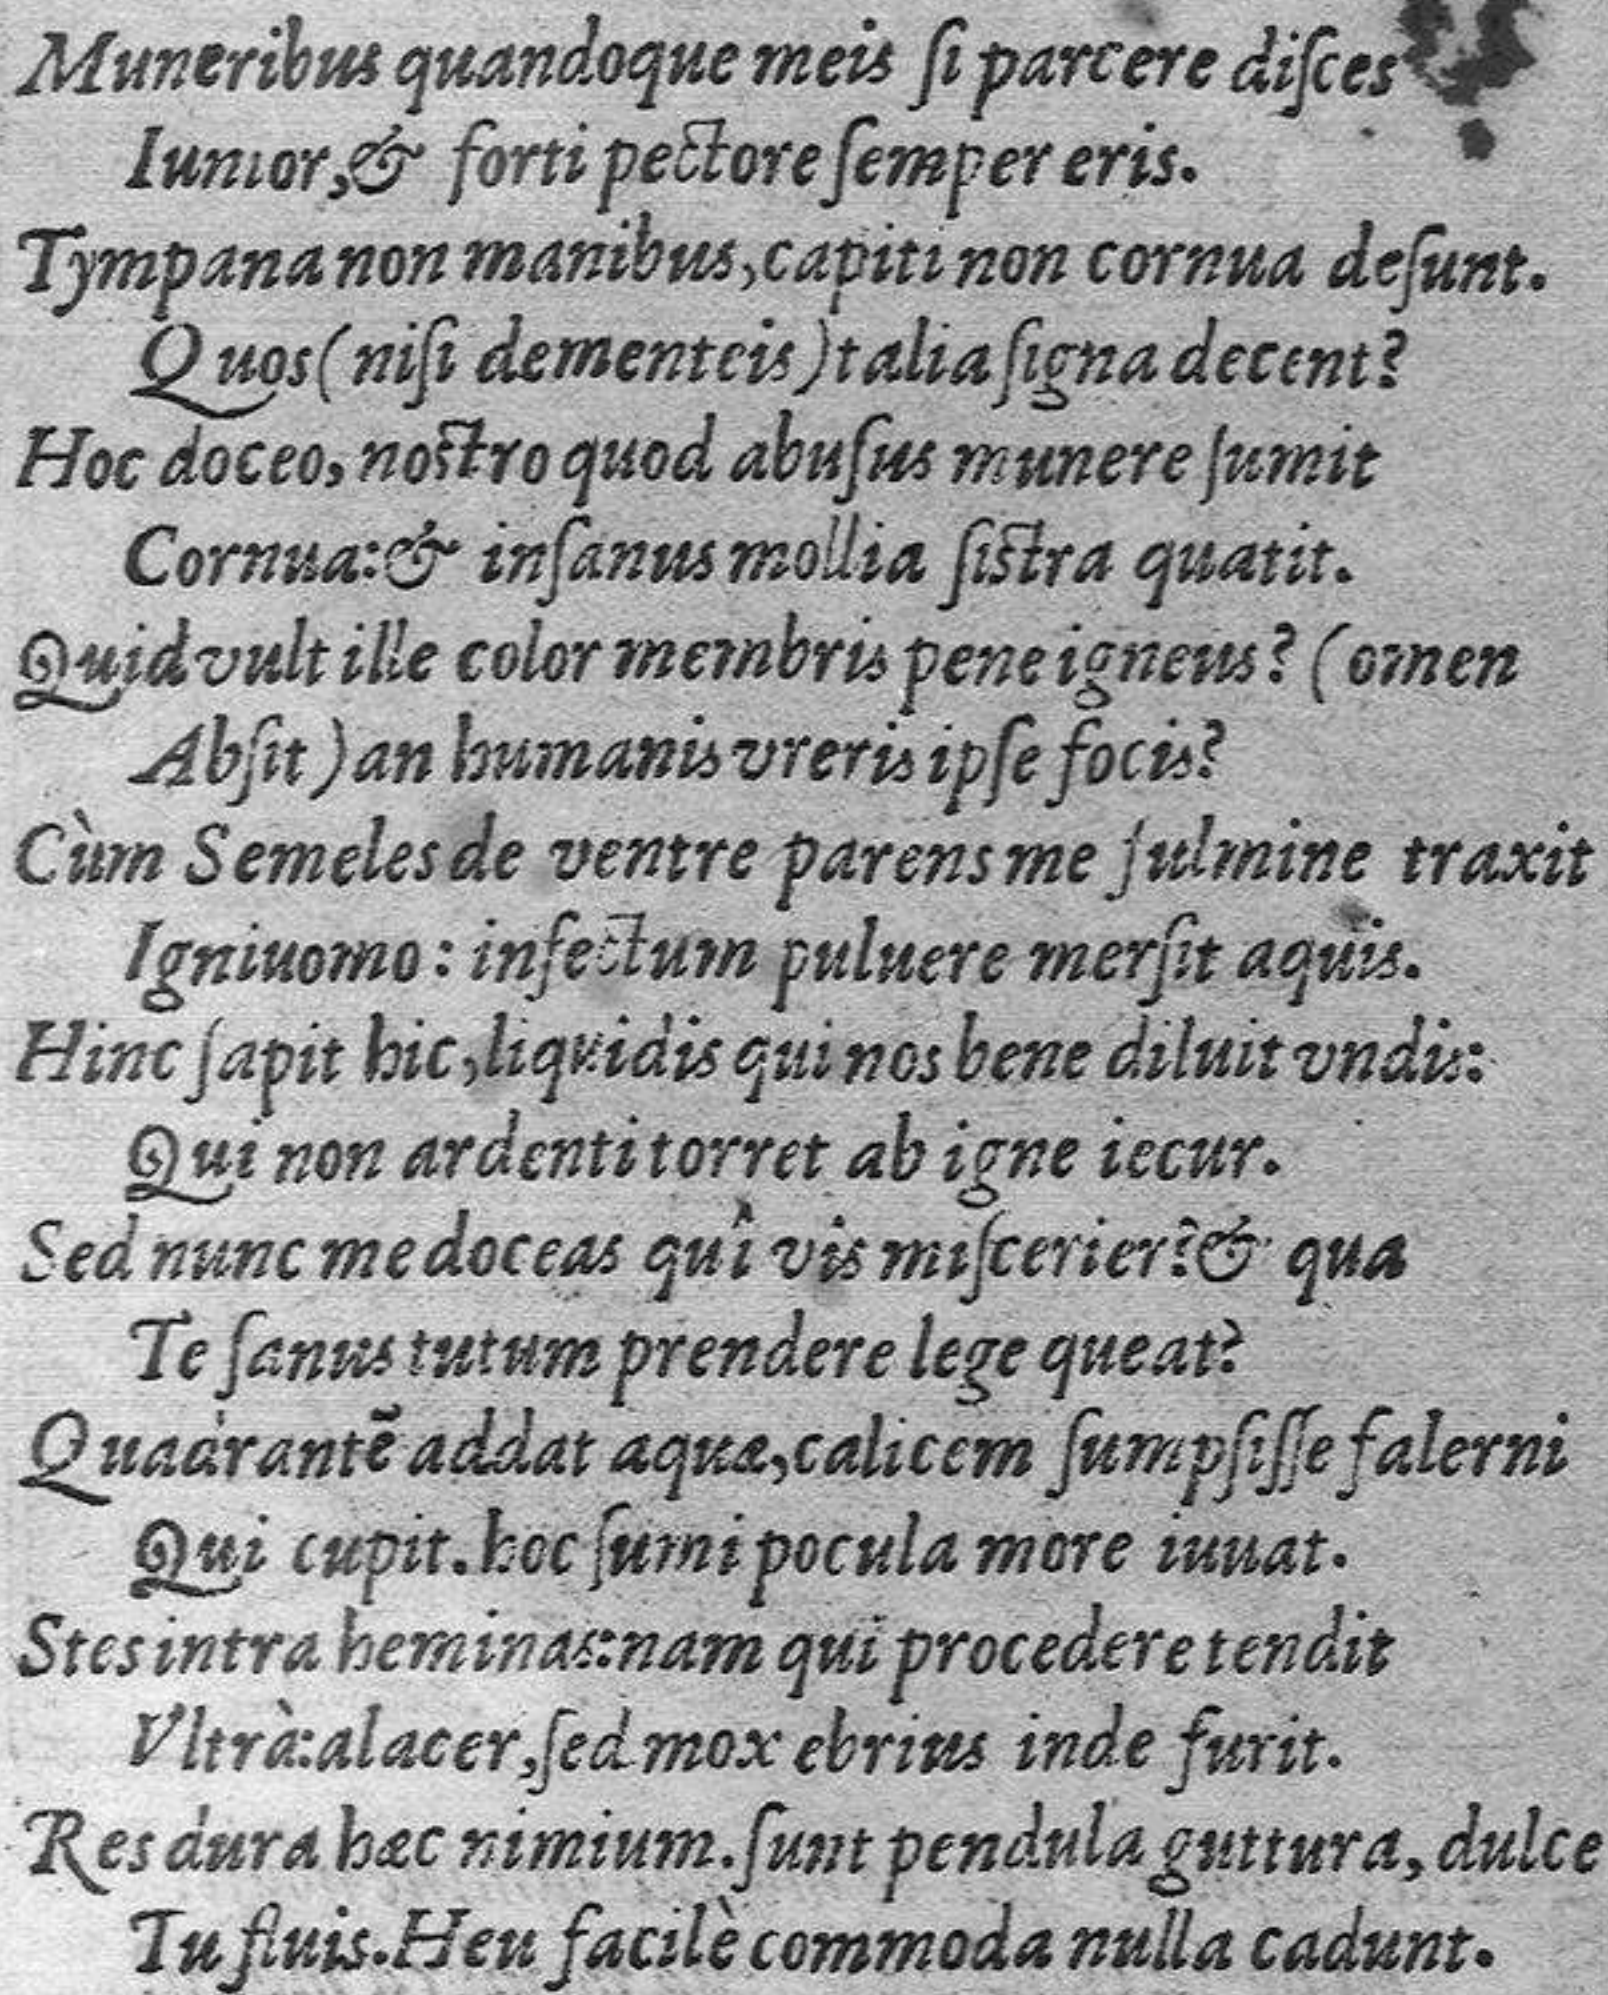 Muneribus quandoque meis ſi parcere diſces
Iunior, & forti pectore ſemper eris.
Tympana non manibus, capiti non cornua deſunt.
Quos (niſi dementeis) talia ſigna decent?
Hoc doceo, noſtro quod abuſus munere ſumit
Cornua: & inſanus mollia ſiſtra quatit.
Quid vult ille color membris pene igneus? (omen
Abſit) an humanis vreris ipſe focis?
Cùm Semeles de ventre parens me fulmine traxit
Igniuomo: infectum puluere merſit aquis.
Hinc ſapit hic, liquidis qui nos bene diluit vndis:
Qui non ardenti torret ab igne iecur.
Sed nunc me doceas quî vis miſcerier? & qua
Te ſanus tutum prendere lege queat?
Quadrantē addat aquæ, calicem ſumpſiſſe falerni
Qui cupit. hoc ſumi pocula more iuuat.
Stes intra heminas: nam qui procedere tendit
Vltrà: alacer, ſed mox ebrius inde furit.
Res dura hæc nimium. ſunt pendula guttura, dulce
Tu fluis. Heu facilè commoda nulla cadunt.